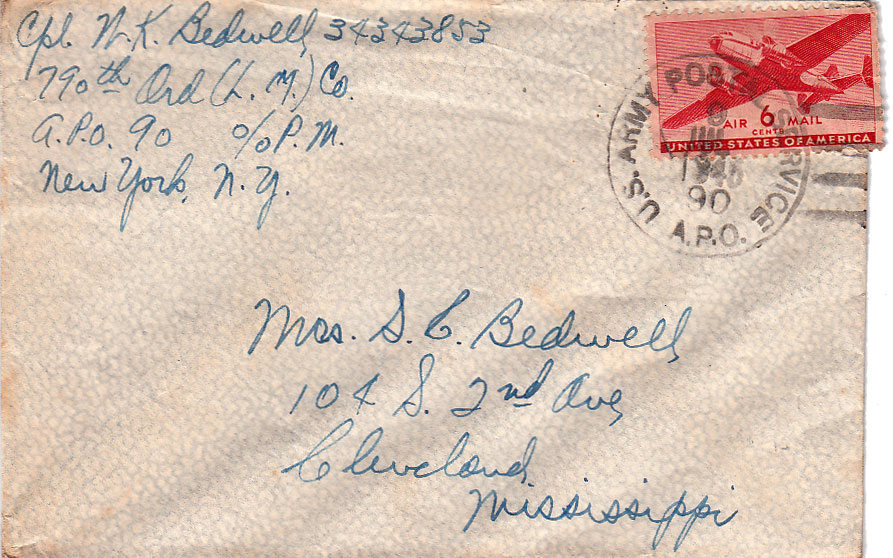 Cpl. N.K. Bedwell 34343853
790th Ord (L. M.) Co.
A.P.O. 90 c/o P.M.
New York, N.Y.
AIR 6 MAIL
CENTS
UNITED STATES OF AMERICA
U.S. ARMY POSTAL SERVICE
9
90
A.P.O.
Mrs. S. C. Bedwell
104 S. 2nd Ave
Cleveland,
Mississippi